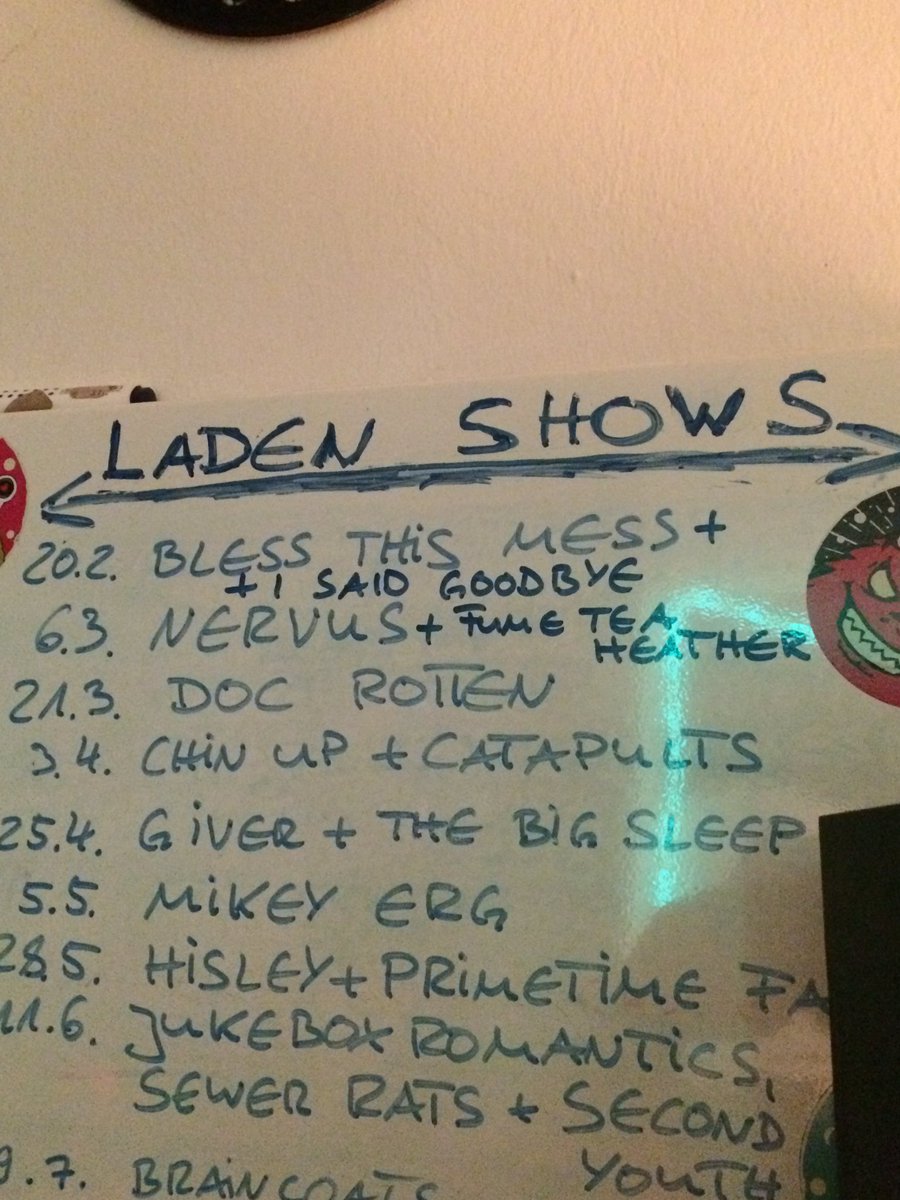 LADEN SHOWS
20.2. BLESS THIS MESS +
+ I SAID GOODBYE
6.3. NERVUS + FUME TEA
HEATHER
21.3. DOC ROTTEN
3.4. CHIN UP + CATAPULTS
25.4. GIVER + THE BIG SLEEP
5.5. MIKEY ERG
28.5. HISLEY + PRIMETIME FA
11.6. JUKEBOX ROMANTICS,
SEWER RATS + SECOND
YOUTH
9.7. BRAINCOATS